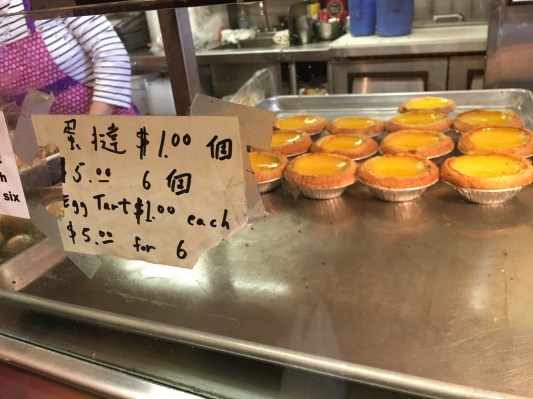 蛋撻 $1.00 個
$5.00 6 個
Egg Tart $1.00 each
$5.00 for 6
six